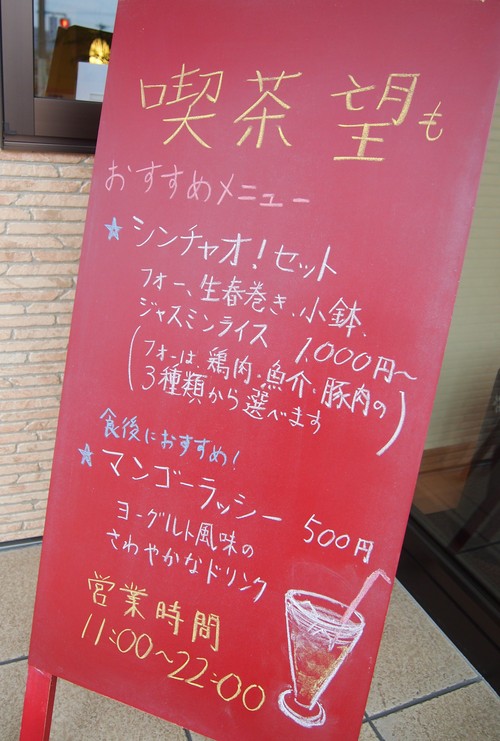 喫茶 望も
おすすめメニュー
★ シンチャオ!セット
フォー、生春巻き、小鉢、
ジャスミンライス 1,000円〜
(フォーは、鶏肉・魚介・豚肉の
3種類から選べます)
食後におすすめ!
★ マンゴーラッシー 500円
ヨーグルト風味の
さわやかなドリンク
営業時間
11:00〜22:00